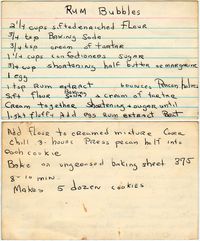 Rum Bubbles
2 1/4 cups sifted enriched flour
3/4 tsp Baking Soda
3/4 tsp cream of tartar
1 1/4 cups confectioners sugar
3/4 cup shortening half butter or margarine
1 egg
1 tsp Rum extract ounces Pecan Halves
Sift Flour Baking Soda & cream of tartar
Cream together shortening & sugar until
light fluffy Add egg Rum extract Beat
Add flour to creamed mixture Cover
Chill 3 hours Press pecan half into
each cookie
Bake on ungreased baking sheet 375
8-10 min.
Makes 5 dozen cookies